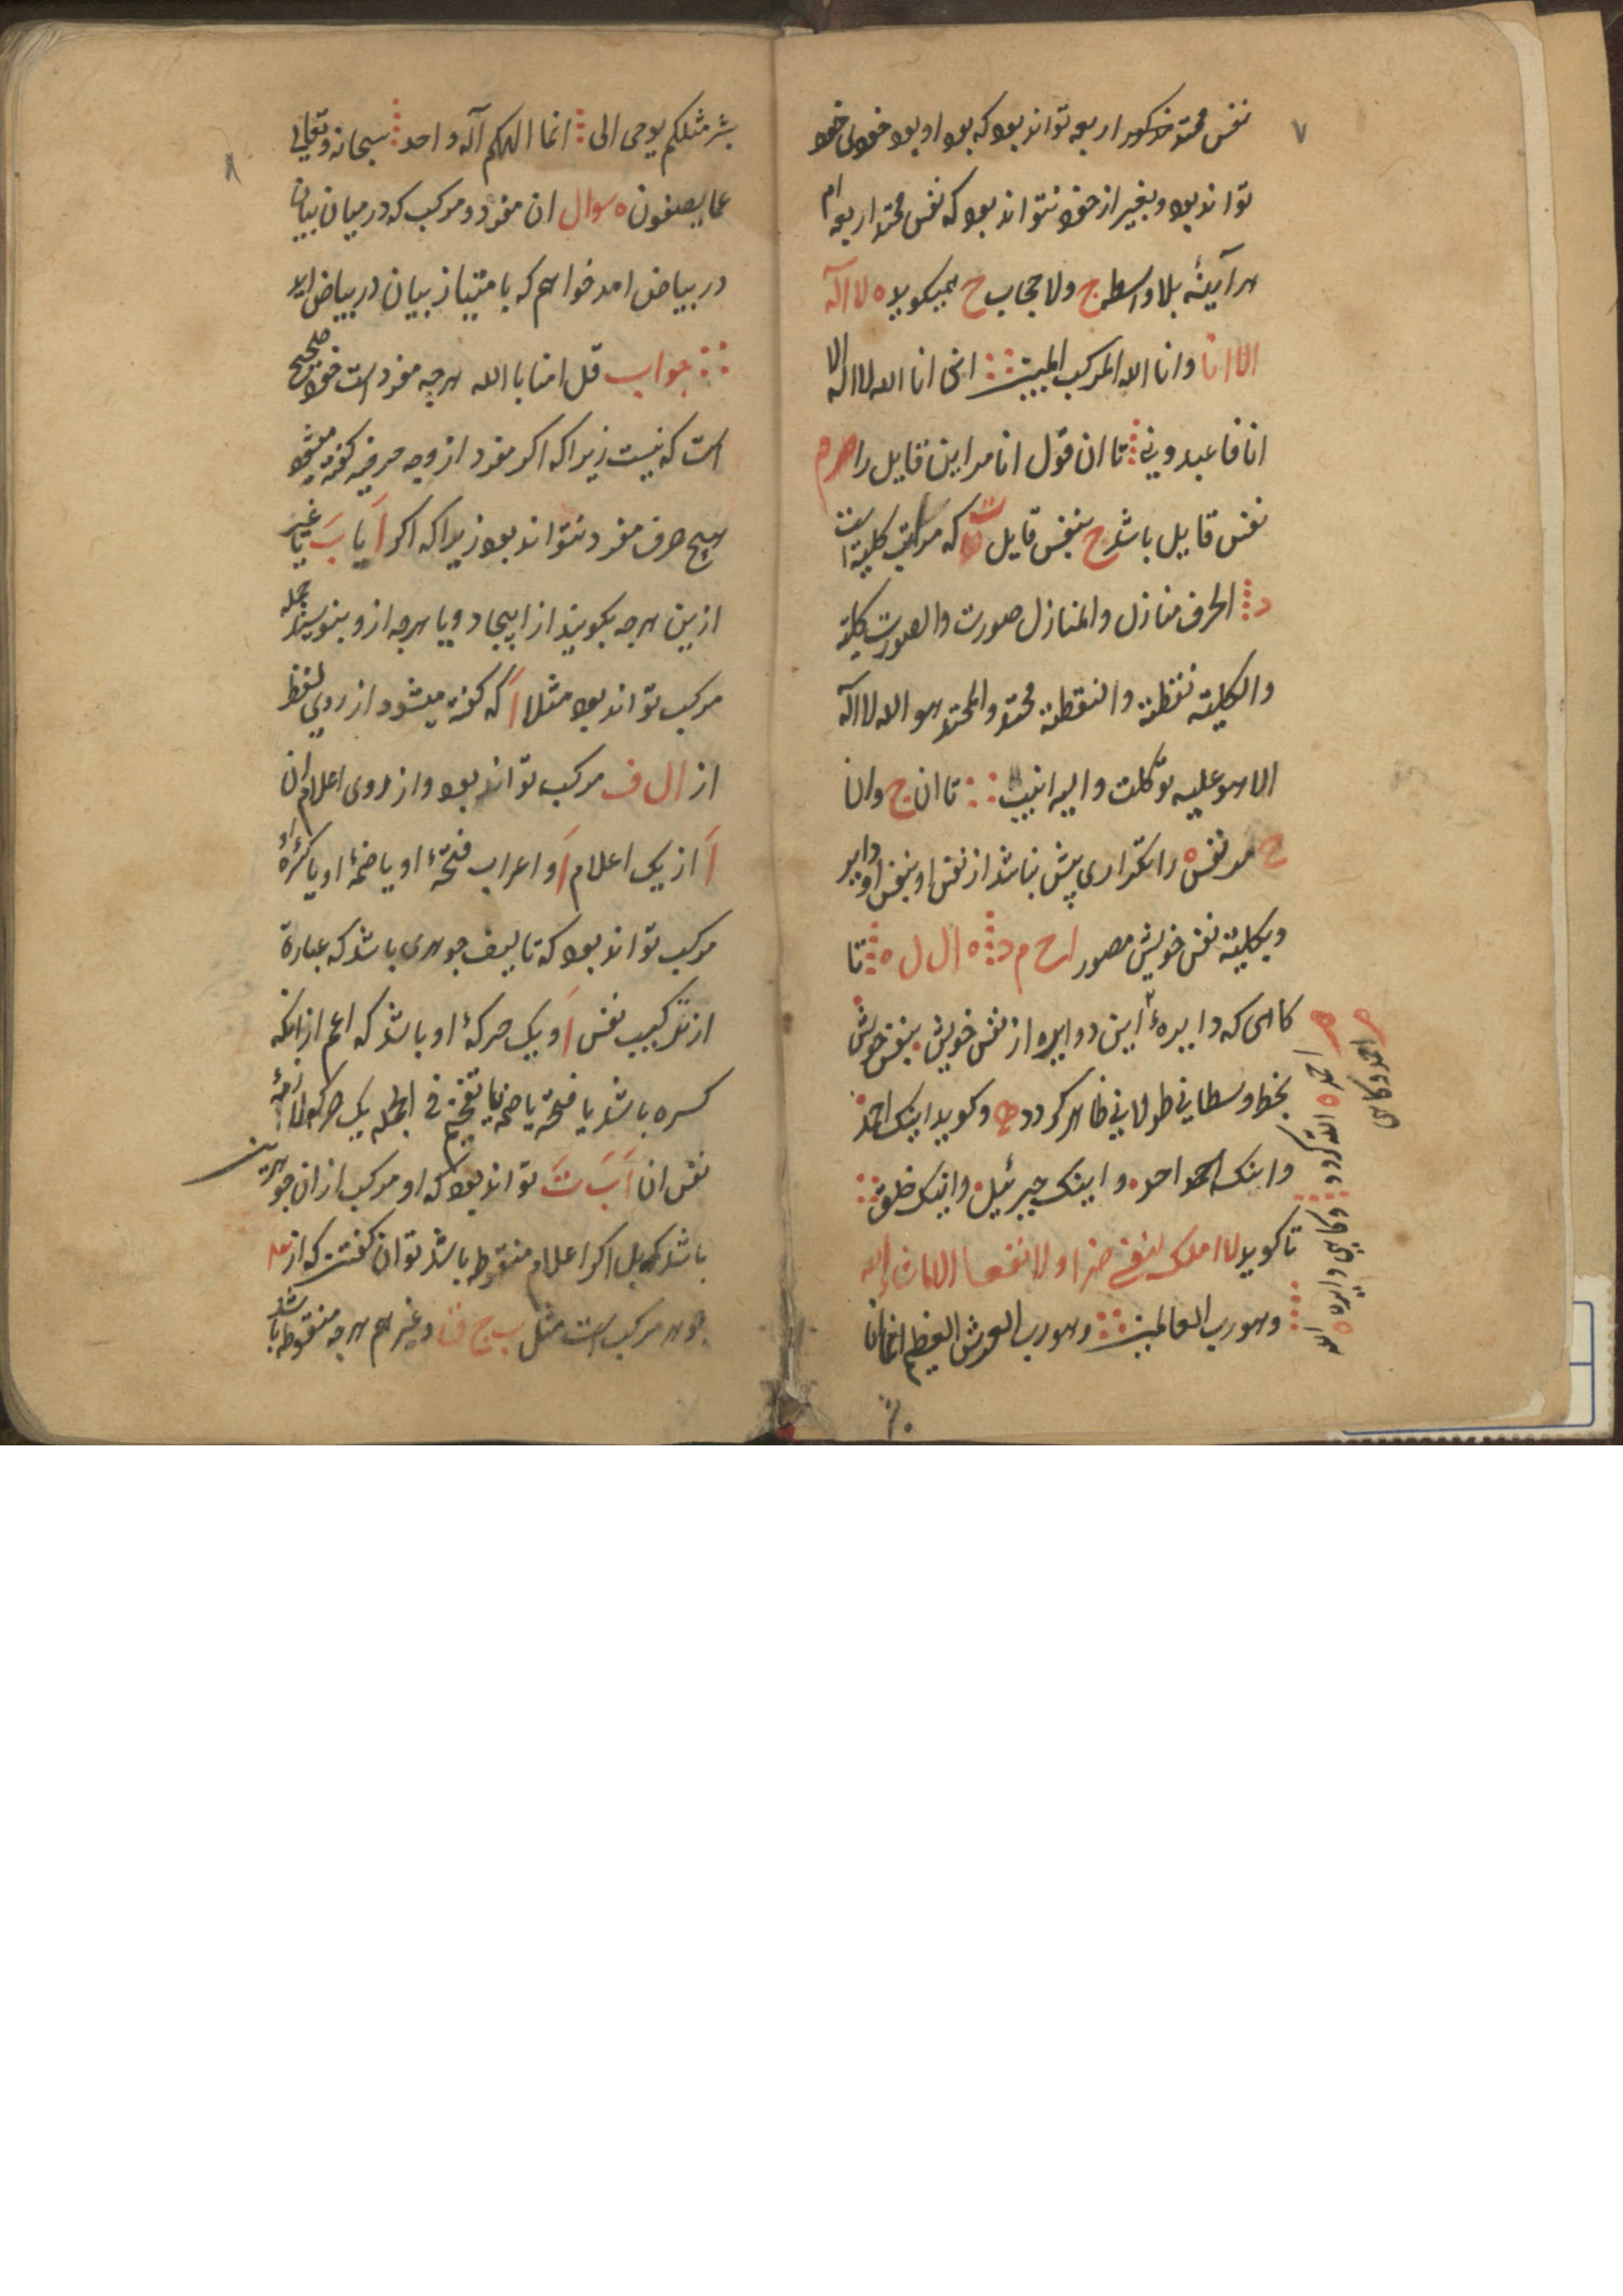 ۷
نفس محتد مذکور اربعه تواند بود که بود او بود خود بی خود
تواند بود و بغیر از خود نتواند بود که نفس محتد اربعه ام
هر آینهٔ بلا واسطه ج ولا حجاب ح میکوید ه لا اله
الا انا وانا الله المرکب المبین ∴ انی انا الله لا اله الا
انا فاعبدونی ∴ تا ان قول انا مر این قایل را
نفس قایل باشد ح بنفس قایل که مراتب کلیة است
د ∴ الحرف منازل والمنازل صورت والصورت کلیته
والکلیته نقطته والنقطته محتد والمحتد هو الله لا اله
الا هو علیه توکلت والیه انیب ∴ تا ان ج وانا
ح مد نفس ه را تکراری پیش نباشد از نفس او بنفس او دایر
و بکلیته نفس خویش مصور ا ح م د ∴ ه ال ل ه ∴ تا
کاهی که دایرهٔ این دوایره از نفس خویش بنفس خویش
بخط وسطانی طولانی ظاهر کردد و کوید اینک احمد
و اینک احمد احد ه و اینک جبرئیل و اینک خلق ∴
تا کوید لا املک لنفسی ضرا ولا نفعا الا ما شاء الله
∴ وهو رب العالمین ∴ وهو رب العرش العظیم انما انا
۸
بشر مثلکم یوحی الی ∴ انما الهکم اله واحد ∴ سبحانه وتعالی
عما یصفون ه سوال ان مفرد و مرکب که در میان بیان
در بیاض امد خواهم که بامتیاز بیان در بیاض اید
∴ جواب قل امنا بالله هرچه مفرد است خود صحیح
است که نیست زیرا که اکر مفرد از وجه حرفیه کفته میشود
هیچ حرف مفرد نتواند بود زیرا که اکر اَ یا بَ یا غیر
ازین هرچه بکویند از ابیجاد و یا هرچه ازو بنویسند جمله
مرکب تواند بود مثلا اَ که کفته میشود از روی لفظ
از ال ف مرکب تواند بود و از روی اعلام ان
اَ از یک اعلام اَ و اعراب فتحهٔ او یا ضمهٔ او یا کسرهٔ او
مرکب تواند بود که تالیف جوهری باشد که عبارة
از ترکیب نفس اَ و یک حرکهٔ او باشد که اعم ازانکه
کسره باشد یا فتحه یا ضمه یا تفخیم فی الجمله یک حرکه
نفس ان اَ بَ تَ تواند بود که او مرکب ازان جوهرین
باشد که بل اکر اعلام منقوط باشد توان کفتن که از سه
جوهر مرکب است مثل ب ج ف و غیر هم هرچه منقوط باشد